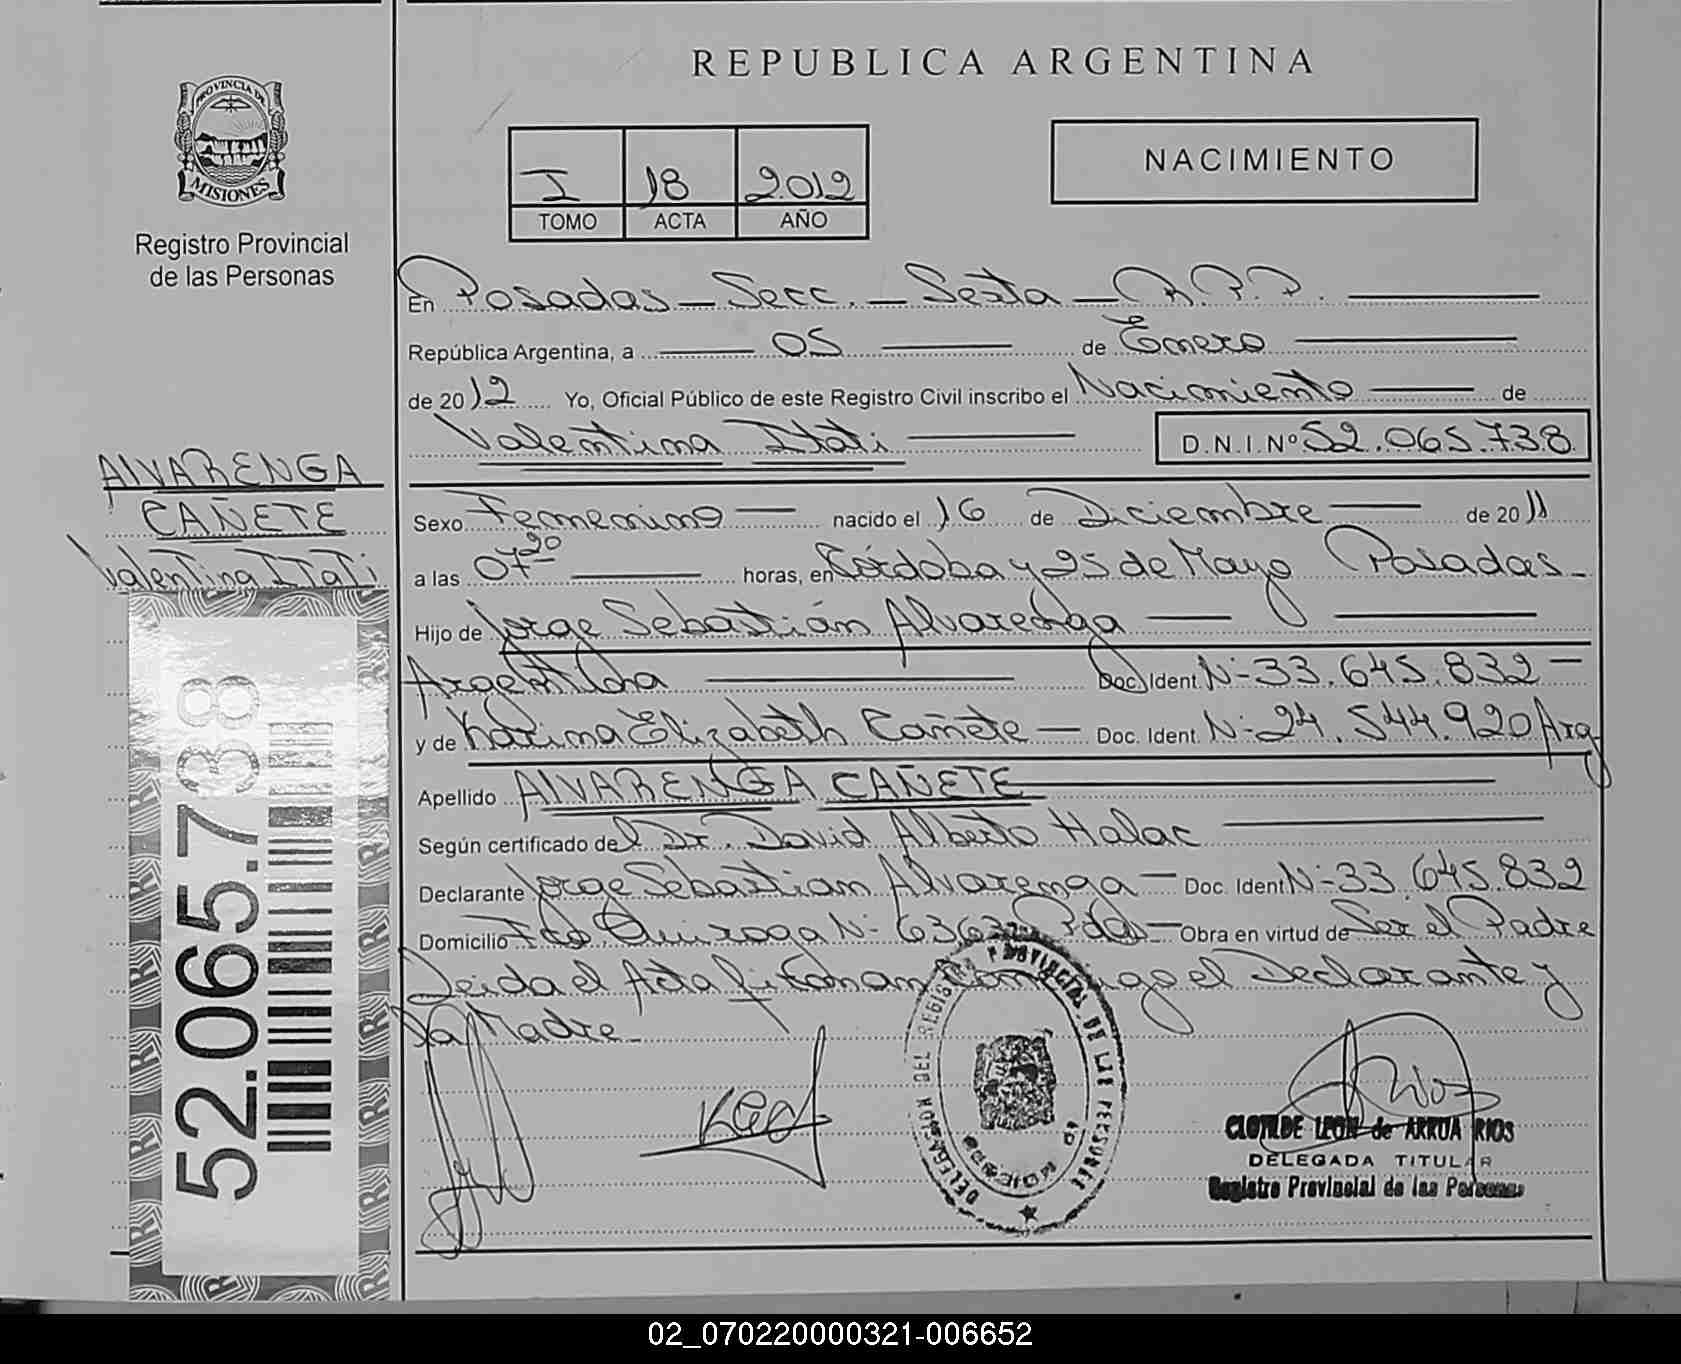 REPUBLICA ARGENTINA
PROVINCIA DE
MISIONES
Registro Provincial
de las Personas
I 18 2.012
TOMO ACTA AÑO
NACIMIENTO
En Posadas - Secc. - Sexta - R.P.P.
República Argentina, a 05 de Enero
de 2012 Yo, Oficial Público de este Registro Civil inscribo el Nacimiento de
Valentina Itati D.N.I. Nº 52.065.738
ALVARENGA
CAÑETE
Valentina Itati
Sexo Femenino nacido el 16 de Diciembre de 2011
a las 07 20 horas, en Córdoba y 25 de Mayo Posadas
Hijo de Jorge Sebastián Alvarenga
Argentina Doc. Ident. N- 33.645.832
y de Karina Elizabeth Cañete Doc. Ident. N- 24.544.920 Arg
Apellido ALVARENGA CAÑETE
Según certificado del Dr. David Alberto Halac
Declarante Jorge Sebastian Alvarenga Doc. Ident N- 33.645.832
Domicilio Fco. Quiroga N- Pdas Obra en virtud de Ser el Padre
Leida el Acta firman el Declarante y
la Madre
52.065.738
DELEGACION DEL REGISTRO PROVINCIAL DE LAS PERSONAS
CLOTILDE LEON de ARRUA RIOS
DELEGADA TITULAR
Registro Provincial de las Personas
02_070220000321-006652